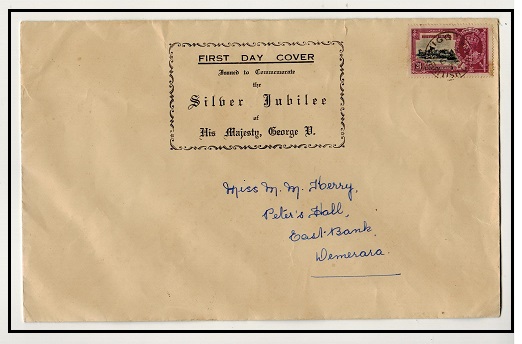 FIRST DAY COVER
Issued to Commemorate
the
Silver Jubilee
of
His Majesty, George V.
Miss M. M. Herry,
Peter's Hall,
East Bank,
Demerara.